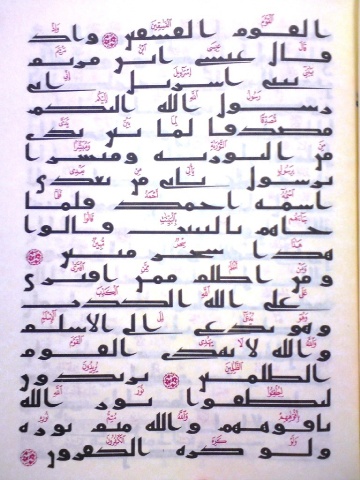 القوم الفسقين واذ
قال عيسى ابن مريم
يبنى اسريل انى
رسول الله اليكم
مصدقا لما بين يدى
من التورية ومبشرا
برسول ياتى من بعدى
اسمه احمد فلما
جاهم بالبينت قالوا
هذا سحر مبين
ومن اظلم ممن افترى
على الله الكذب
وهو يدعى الى الاسلم
والله لا يهدى القوم
الظلمين يريدون
ليطفوا نور الله
بافوههم والله متم نوره
ولو كره الكفرون